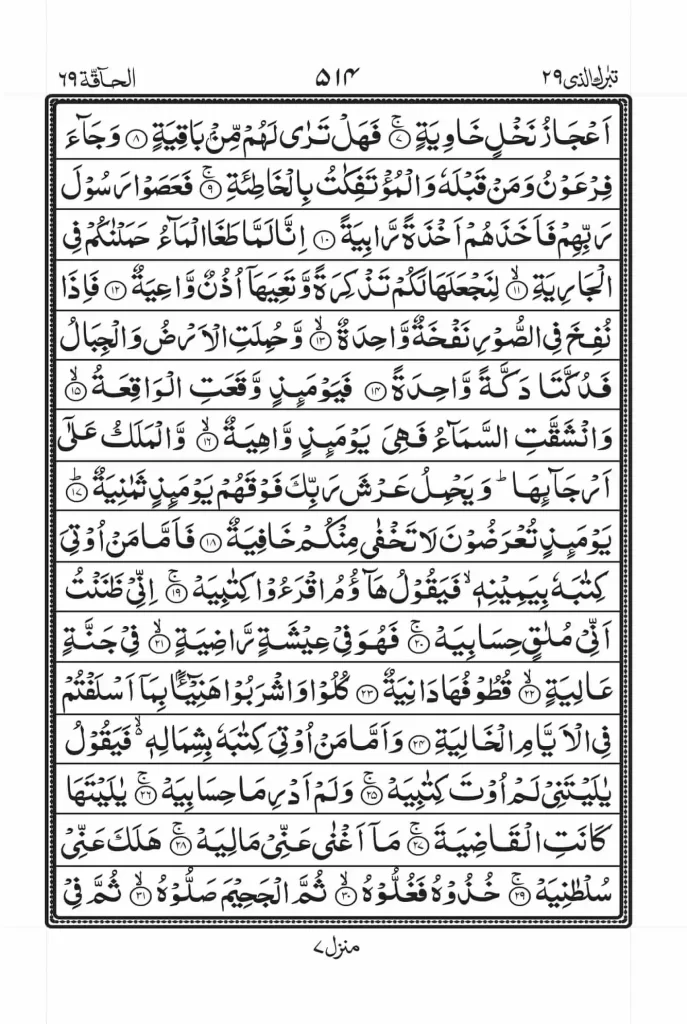 تبٰرك الذی ٢٩
٥١٤
الحآقّة ٦٩
اَعْجَازُ نَخْلٍ خَاوِیَةٍ ۚ‏﴿۷﴾ فَهَلْ تَرٰی لَهُمْ مِّنْۢ بَاقِیَةٍ ﴿۸﴾ وَ جَآءَ
فِرْعَوْنُ وَ مَنْ قَبْلَهٗ وَ الْمُؤْتَفِكٰتُ بِالْخَاطِئَةِ ۚ‏﴿۹﴾ فَعَصَوْا رَسُوْلَ
رَبِّهِمْ فَاَخَذَهُمْ اَخْذَةً رَّابِیَةً ﴿۱۰﴾ اِنَّا لَمَّا طَغَا الْمَآءُ حَمَلْنٰكُمْ فِی
الْجَارِیَةِ ۙ‏﴿۱۱﴾ لِنَجْعَلَهَا لَكُمْ تَذْكِرَةً وَّ تَعِیَهَاۤ اُذُنٌ وَّاعِیَةٌ ﴿۱۲﴾ فَاِذَا
نُفِخَ فِی الصُّوْرِ نَفْخَةٌ وَّاحِدَةٌ ۙ‏﴿۱۳﴾ وَّ حُمِلَتِ الْاَرْضُ وَ الْجِبَالُ
فَدُكَّتَا دَكَّةً وَّاحِدَةً ﴿۱۴﴾ فَیَوْمَىِٕذٍ وَّقَعَتِ الْوَاقِعَةُ ۙ‏﴿۱۵﴾
وَ انْشَقَّتِ السَّمَآءُ فَهِیَ یَوْمَىِٕذٍ وَّاهِیَةٌ ۙ‏﴿۱۶﴾ وَّ الْمَلَكُ عَلٰۤی
اَرْجَآىِٕهَا ؕ وَ یَحْمِلُ عَرْشَ رَبِّكَ فَوْقَهُمْ یَوْمَىِٕذٍ ثَمٰنِیَةٌ ؕ‏﴿۱۷﴾
یَوْمَىِٕذٍ تُعْرَضُوْنَ لَا تَخْفٰی مِنْكُمْ خَافِیَةٌ ﴿۱۸﴾ فَاَمَّا مَنْ اُوْتِیَ
كِتٰبَهٗ بِیَمِیْنِهٖ ۙ فَیَقُوْلُ هَآؤُمُ اقْرَءُوْا كِتٰبِیَهْ ۚ‏﴿۱۹﴾ اِنِّیْ ظَنَنْتُ
اَنِّیْ مُلٰقٍ حِسَابِیَهْ ۚ‏﴿۲۰﴾ فَهُوَ فِیْ عِیْشَةٍ رَّاضِیَةٍ ۙ‏﴿۲۱﴾ فِیْ جَنَّةٍ
عَالِیَةٍ ۙ‏﴿۲۲﴾ قُطُوْفُهَا دَانِیَةٌ ﴿۲۳﴾ كُلُوْا وَ اشْرَبُوْا هَنِیْٓـًٔۢا بِمَاۤ اَسْلَفْتُمْ
فِی الْاَیَّامِ الْخَالِیَةِ ﴿۲۴﴾ وَ اَمَّا مَنْ اُوْتِیَ كِتٰبَهٗ بِشِمَالِهٖ ۙ۬ فَیَقُوْلُ
یٰلَیْتَنِیْ لَمْ اُوْتَ كِتٰبِیَهْ ۚ‏﴿۲۵﴾ وَ لَمْ اَدْرِ مَا حِسَابِیَهْ ۚ‏﴿۲۶﴾ یٰلَیْتَهَا
كَانَتِ الْقَاضِیَةَ ۚ‏﴿۲۷﴾ مَاۤ اَغْنٰی عَنِّیْ مَالِیَهْ ۚ‏﴿۲۸﴾ هَلَكَ عَنِّیْ
سُلْطٰنِیَهْ ۚ‏﴿۲۹﴾ خُذُوْهُ فَغُلُّوْهُ ۙ‏﴿۳۰﴾ ثُمَّ الْجَحِیْمَ صَلُّوْهُ ۙ‏﴿۳۱﴾ ثُمَّ فِیْ
منزل ٧